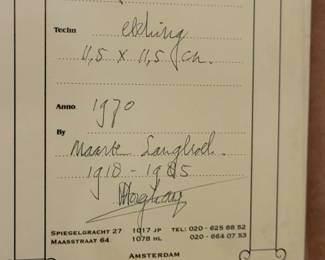 Techn etching
11,5 x 11,5 cm.
Anno 1970
By
Maarten Langbroek.
1918 - 1985
SPIEGELGRACHT 27 1017 JP TEL: 020 - 625 88 52
MAASSTRAAT 64 1078 HL 020 - 664 07 53
AMSTERDAM